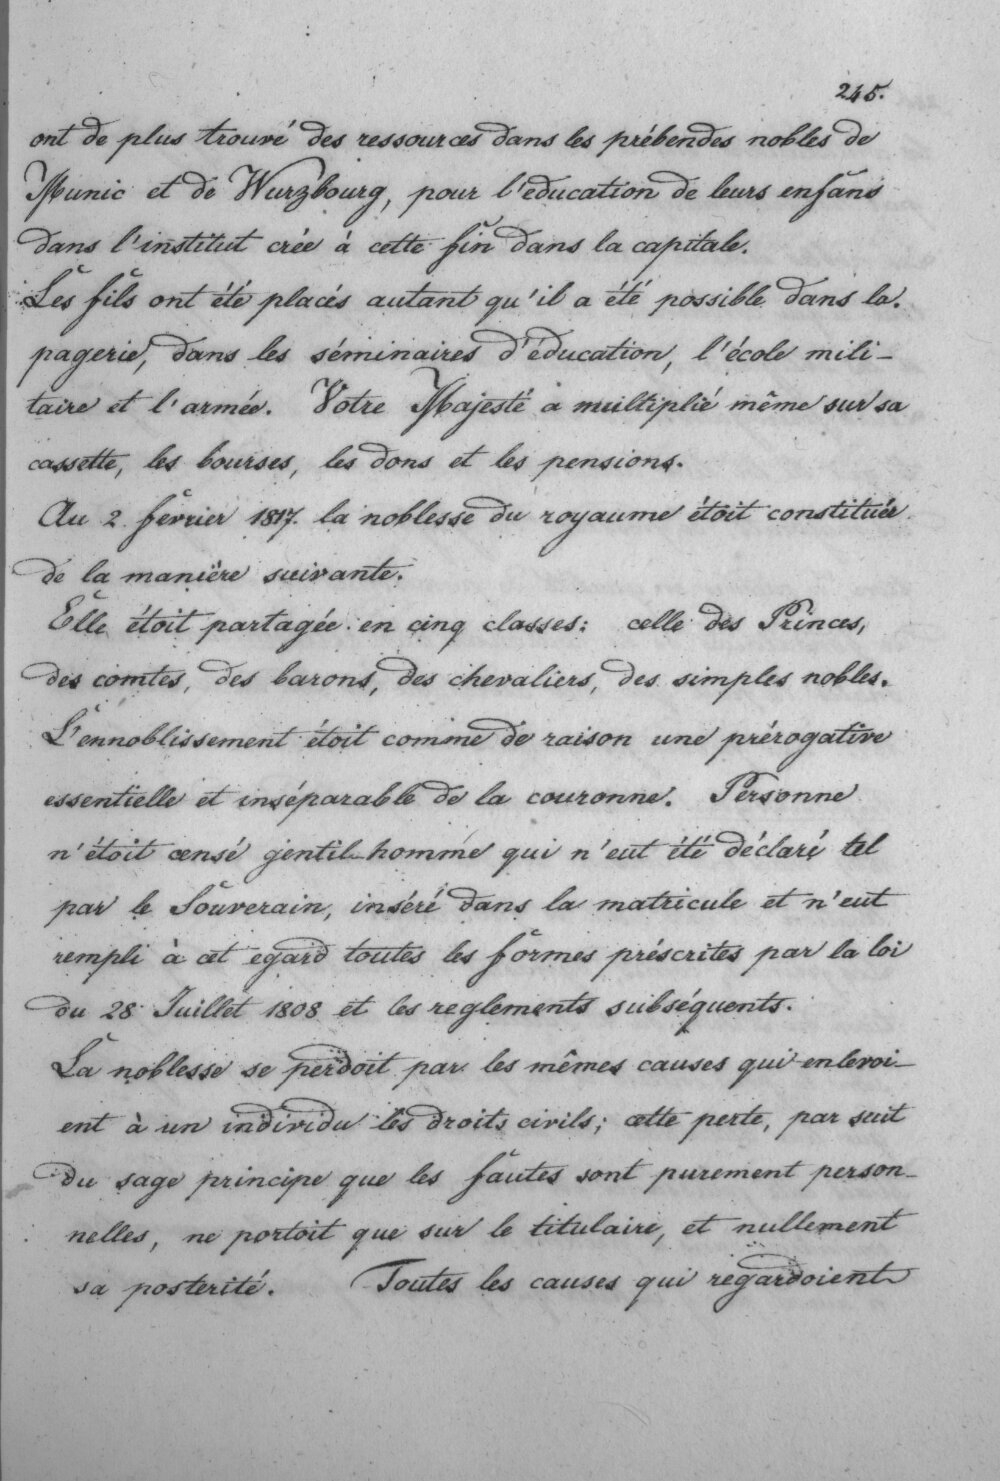 245.
ont de plus trouvé des ressources dans les prébendes nobles de
Munic et de Wurzbourg, pour l'education de leurs enfans
dans l'institut crée à cette fin dans la capitale.
Les fils ont été placés autant qu'il a été possible dans la
pagerie, dans les séminaires d'éducation, l'école mili-
taire et l'armée. Votre Majesté a multiplié même sur sa
cassette, les bourses, les dons et les pensions.
Au 2 février 1817. la noblesse du royaume étoit constituée
de la manière suivante.
Elle étoit partagée en cinq classes: celle des Princes,
des comtes, des barons, des chevaliers, des simples nobles.
L'ennoblissement étoit comme de raison une prérogative
essentielle et inséparable de la couronne. Personne
n'étoit censé gentil-homme qui n'eut été déclaré tel
par le Souverain, inséré dans la matricule et n'eut
rempli à cet egard toutes les formes préscrites par la loi
du 28 Juillet 1808 et les reglements subséquents.
La noblesse se perdoit par les mêmes causes qui enlevoi-
ent à un individu les droits civils; cette perte, par suit
du sage principe que les fautes sont purement person-
nelles, ne portoit que sur le titulaire, et nullement
sa posterité. Toutes les causes qui regardoient